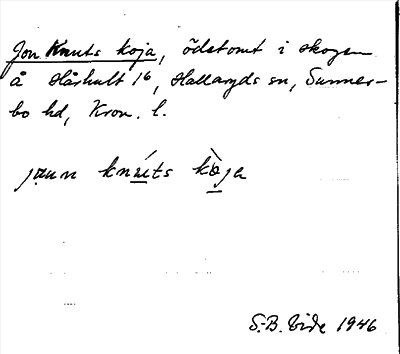 Jon Knuts koja, ödetomt i skogen
å Hårhult 16, Hallaryds sn, Sunner-
bo hd, Kron. l.
jɷun knúts kòja
S.-B. Vide 1946